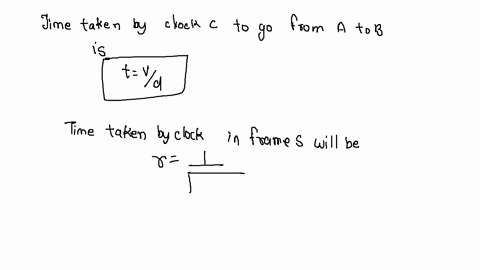 Time taken by clock C to go from A to B
is
t = v/d
Time taken by clock in frame S will be
γ = 1/√